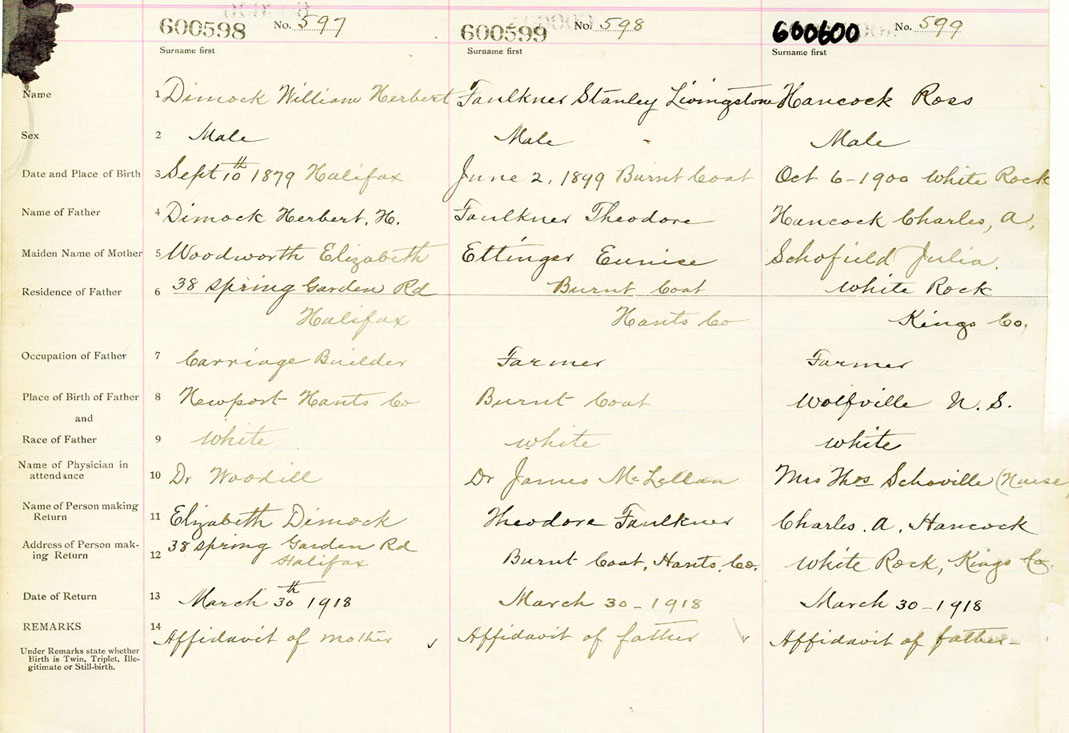 600598 No. 597 600599 No. 598 600600 No. 599
Surname first Surname first Surname first
Name 1 Dimock William Herbert Faulkner Stanley Livingstone Hancock Ross
Sex 2 Male Male Male
Date and Place of Birth 3 Sept 10th 1879 Halifax June 2, 1899 Burnt Coat Oct 6-1900 White Rock
Name of Father 4 Dimock Herbert. H. Faulkner Theodore Hancock Charles, A,
Maiden Name of Mother 5 Woodworth Elizabeth Ettinger Eunise Schofield Julia.
Residence of Father 6 38 Spring Garden Rd Burnt Coat White Rock
Halifax Hants Co Kings Co,
Occupation of Father 7 Carriage Builder Farmer Farmer
Place of Birth of Father 8 Newport Hants Co Burnt Coat Wolfville N. S.
and
Race of Father 9 White White White
Name of Physician in
attendance 10 Dr Woodill Dr James McLellan Mrs Thos Schoville (Nurse
Name of Person making
Return 11 Elizabeth Dimock Theodore Faulkner Charles. A, Hancock
Address of Person mak-
ing Return 12 38 Spring Garden Rd Burnt Coat, Hants, Co. White Rock, Kings Co.
Halifax
Date of Return 13 March 30th 1918 March 30-1918 March 30-1918
REMARKS 14 Affidavit of mother Affidavit of father Affidavit of father-
Under Remarks state whether
Birth is Twin, Triplet, Ille-
gitimate or Still-birth.